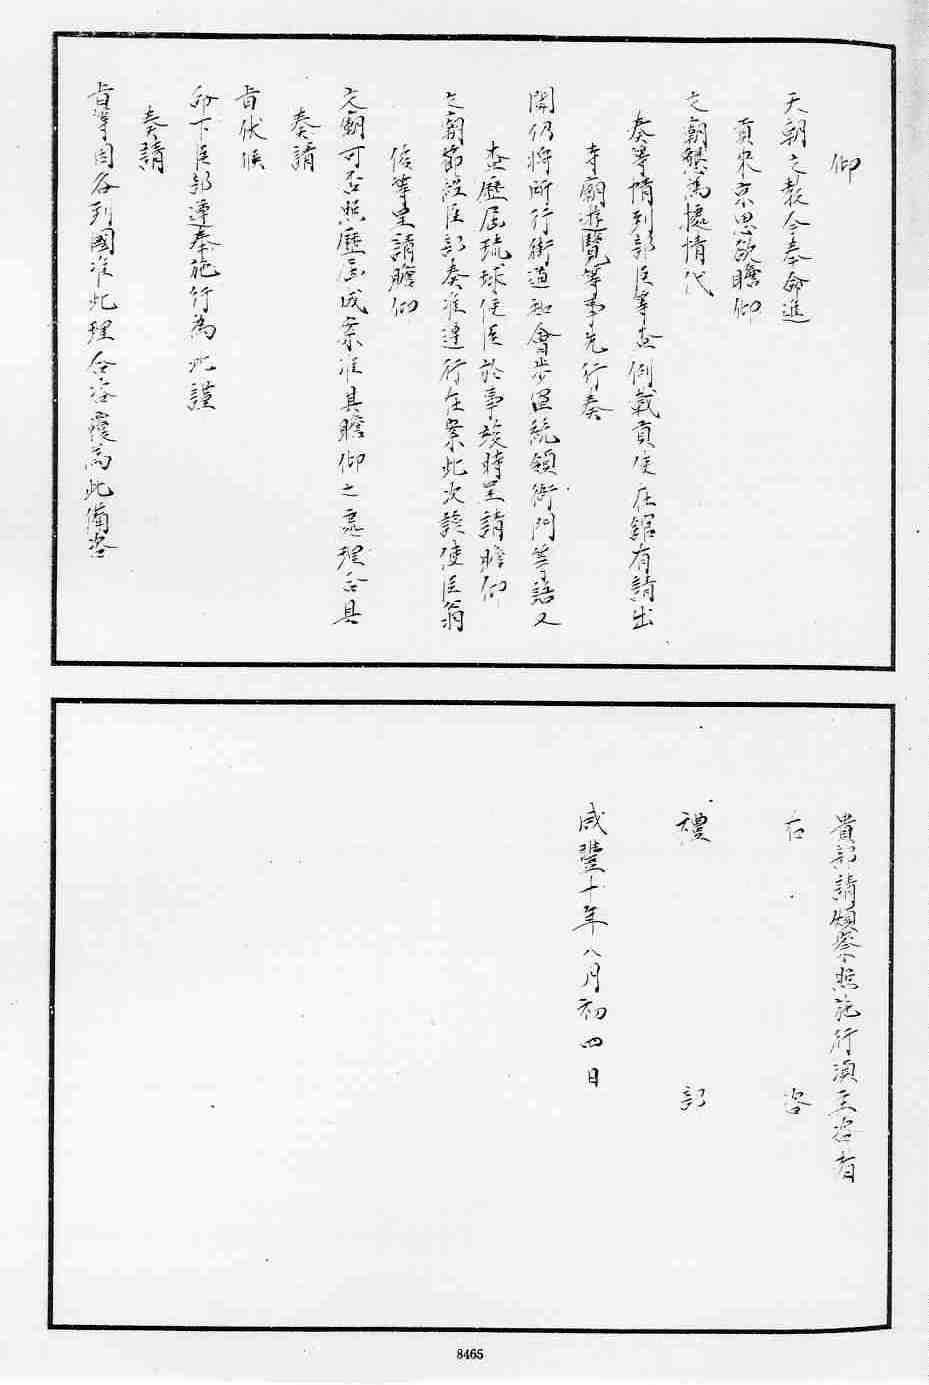 仰
天朝之教今奉命進
貢來京思欲瞻仰
文廟懇為據情代
奏等情到部臣等查例載貢使在館有請出
寺廟遊覽等事先行奏
聞仍將所行街道知會步軍統領衙門等語又
查歷屆琉球使臣於事竣時呈請瞻仰
文廟節經臣部奏准遵行在案此次該使臣翁
俊等呈請瞻仰
文廟可否照歷屆成案准其瞻仰之處理合具
奏請
旨伏候
命下臣部遵奉施行為此謹
奏請
旨等因咨到國准此理合咨覆為此備咨
貴部請煩察照施行須至咨者
右 咨
禮 部
咸豐十年八月初四日
8465